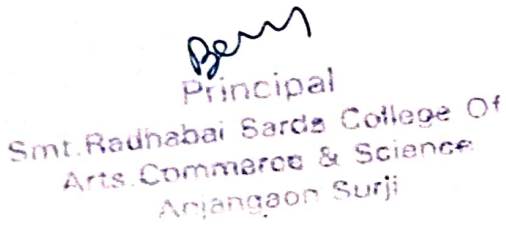 Principal
Smt. Radhabai Sarda College Of
Arts, Commerce & Science
Anjangaon Surji